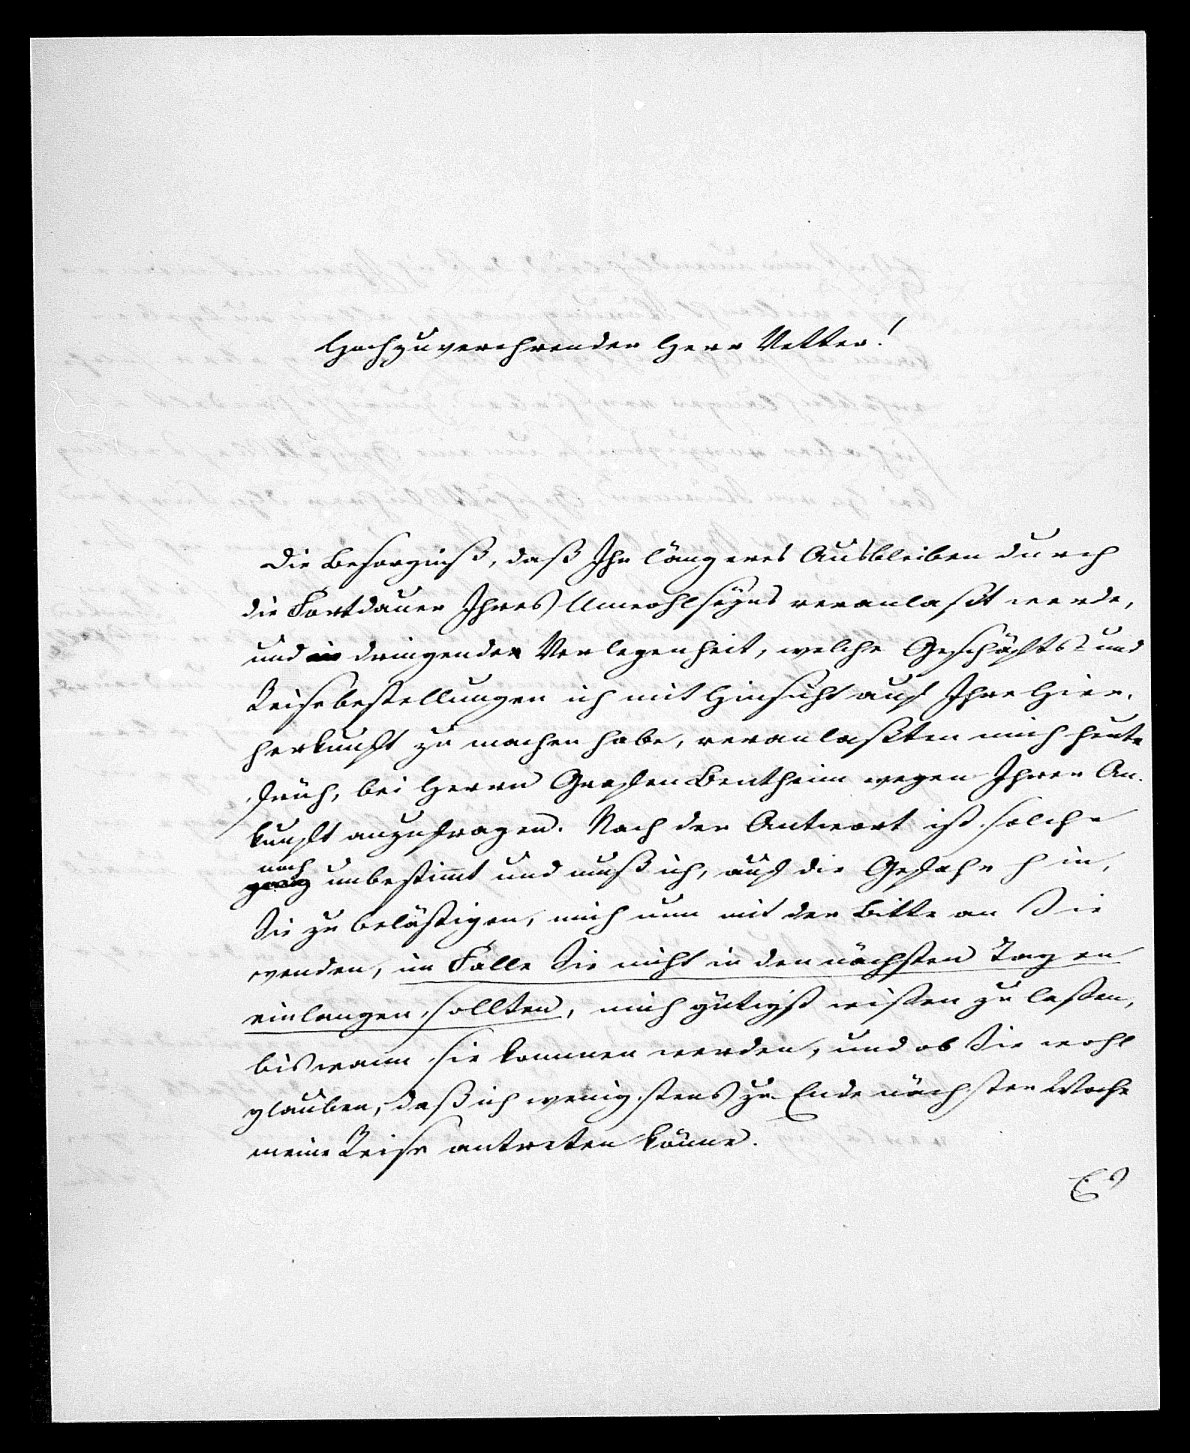 Hochzuverehrender Herr Vetter!
Die Besorgniß, daß Ihr längeres Ausbleiben durch
die Fortdauer Ihres Unwohlseyns veranlaßt werde,
und die dringenden Verlegenheit, welche Geschäfts- und
Reisebestellungen ich mit Hinsicht auf Ihre Hier-
herkunft zu machen habe, veranlaßten mich heute
früh, bei Herrn Grafen Bentheim wegen Ihrer An-
kunft anzufragen. Nach der Antwort ist solche
noch
unbestimmt und muß ich, auf die Gefahr hin,
Sie zu belästigen, mich nun mit der Bitte an Sie
wenden, im Falle Sie nicht in den nächsten Tagen
einlangen sollten, mich gütigst wißen zu laßen,
bis wann sie kommen werden, und ob Sie wohl
glauben, daß ich wenigstens zu Ende nächster Woche
meine Reise antreten könne.